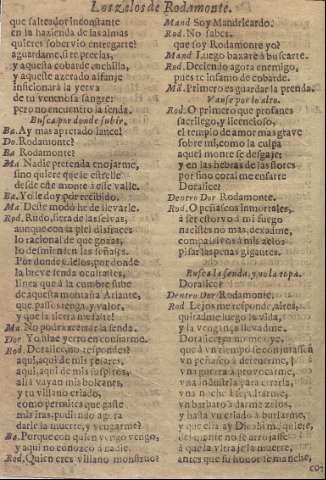 Los zelos de Rodamonte.
que salteador inconstante
en la hazienda de las almas
quieres sobervio entregarte?
aguardame, si te precias,
y aquesta cobarde
y aqueste azerado alfanje
la yerva
de tu venenosa sangre:
pero no encuentro la senda.
Busca por donde subir.
Ba. Ay mas apretado lance!
Do. Rodamonte?
Ba. Rodamonte?
Ma. Nadie pretenda enojarme,
sino quiere que le estrelle
desde este monte à esse valle.
Ba. Yo le doy por recibido.
Ma. Deste modo he de llevarle.
Rod. Rudo, fiera de las selvas,
aunque con la piel disfraces
lo racional de que gozas,
lo desmienten las señas.
Por donde cielos, por donde
la breve senda ocultastes,
linea que à la cumbre sube
de aquesta montaña Atlante,
que passo tenga, y valor,
y que la sierra
Ma. No podrà acertar la senda.
Dor Yo hize yerro en consarme.
Rod. Doralice, no respondes?
aqui, aqui de mis pesares,
aqui, aqui de mis suspiros,
alià vayan mis bolcanes,
y tu villano criado,
como permites que gaste
mis iras, pudiendo aora
darle la muerte, y vengarme?
Ba. Porque con quien vengo vengo,
y aqui no conozco à nadie.
Rod. Quien eres villano monstruo?
Mand Soy Mandricardo.
Rod. No sabes,
que soy Rodamonte yo?
Mand Luego baxarè à buscarte.
Rod. Deciendo agora enemigo,
pues te infamo de cobarde.
Md. Primero es guardar la prenda.
Vanse por lo alto.
Rod. O primero que profanes
sacrilego, y licencioso,
el templo de amor mas grave
sobre mi, como la culpa
aquel monte se desgaje;
y en las hebras de las flores
por fino coral me ensarte
Doralice?
Dentro Dor Rodamonte.
Rod. O peñascos inmortales,
à ser estorvo à mi fuego
nacistes no mas, dexadme,
compassivos à mis zelos
pisar las penas gigantes.
Busca la senda, y no la topa.
Doralice?
Dentro Dor Rodamonte.
Rod Lejos me responde, aires,
quitadme luego la vida,
y la vengança llevadme.
Doralice,
que à un tiempo
un peñasco à detenerme,
una guerra à provocarme,
una industria para errarla,
una noche à sepultarme,
un barbaro à darme zelos,
y hasta un criado à burlarme,
y que ella ay
del monte no se arrojasse
à que la ultraje la muerte,
antes que su honor le manche,